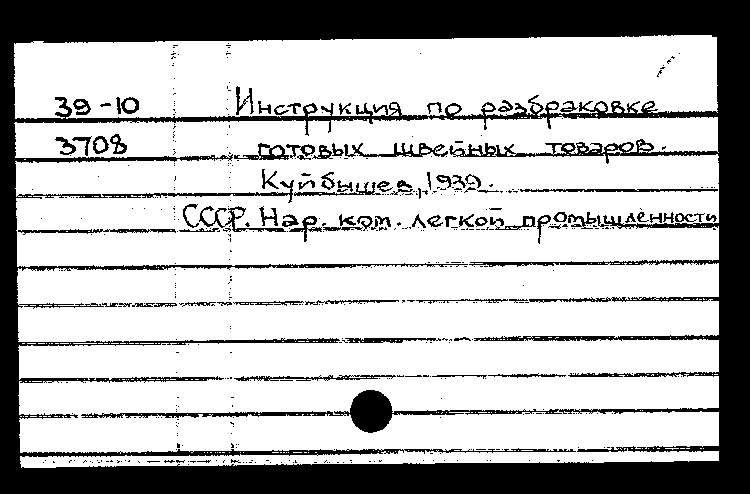 39-10 Инструкция по разбраковке
3708 готовых швейных товаров.
Куйбышев, 1939.
СССР. Нар. ком. легкой промышленности